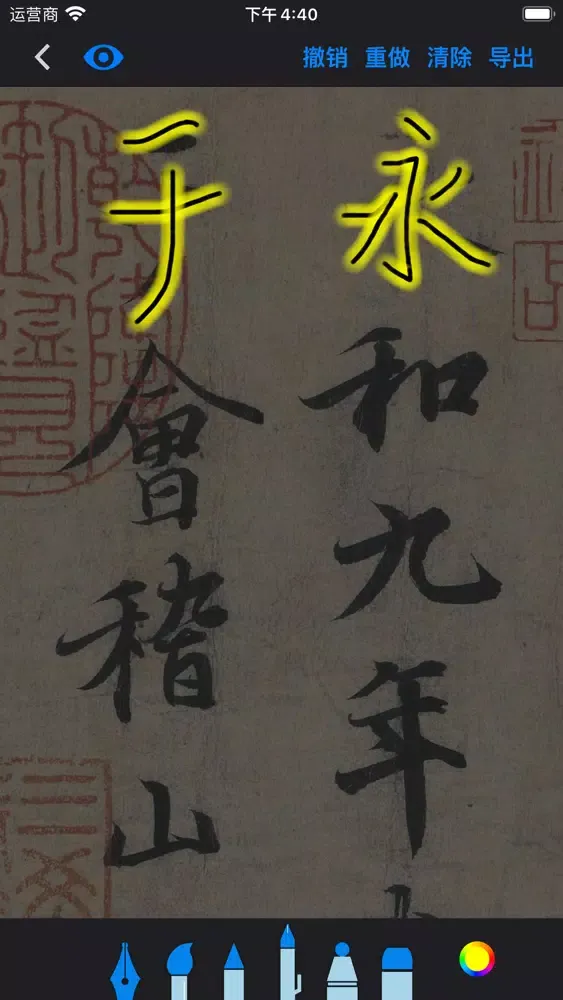 运营商 下午4:40
撤销 重做 清除 导出
永和九年
于會稽山